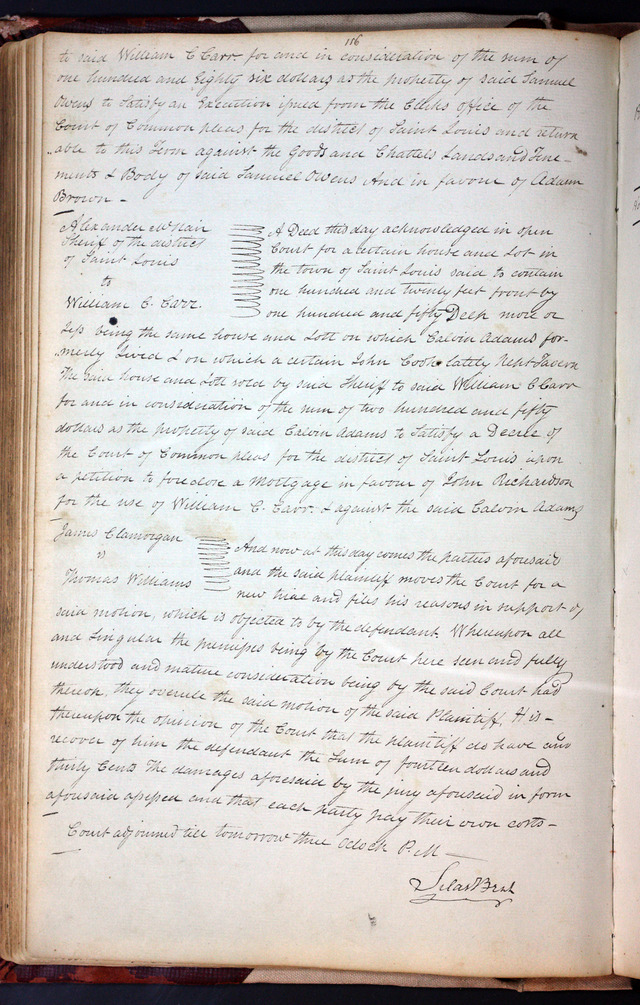 116
to said William C Carr for and in consideration of the sum of
one hundred and Eighty six dollars as the property of said Samuel
Owens to Satisfy an Execution issued from the Clerks office of the
Court of Common pleas for the district of Saint Louis and return
able to this Term against the Goods and Chattels Lands and Tene-
ments & Body of said Samuel Owens And in favour of Adam
Brown -
Alexander McNair
Sheriff of the district
of Saint Louis
to
William C. Carr
A Deed this day acknowledged in open
Court for a certain house and Lot in
the town of Saint Louis said to contain
one hundred and twenty feet front by
one hundred and fifty Deep more or
Less being the same house and Lott on which Calvin Adams for-
merly Lived & on which a certain John Cook lately Kept Tavern
The said house and Lott sold by said Sheriff to said William C Carr
for and in consideration of the sum of two hundred and fifty
dollars as the property of said Calvin Adams to Satisfy a Decree of
the Court of Common pleas for the district of Saint Louis upon
a petition to foreclose a Mortgage in favour of John Richardson
for the use of William C. Carr & against the said Calvin Adams
James Clamorgan
vs
Thomas Williams
And now at this day comes the parties aforesaid
and the said plaintiff moves the Court for a
new trial and files his reasons in support of
said motion, which is objected to by the defendant. Whereupon all
and Singular the premises being by the Court here seen and fully
understood and mature consideration being by the said Court had
thereon, they overule the said motion of the said Plaintiff, It is -
thereupon the opinion of the Court that the plaintiff do have and
recover of him the defendant the Sum of fourteen dollars and
thirty Cents The damages aforesaid by the jury aforesaid in form
aforesaid assessed and that each party pay their own costs -
Court adjourned till tomorrow three Oclock P. M -
Silas Bent